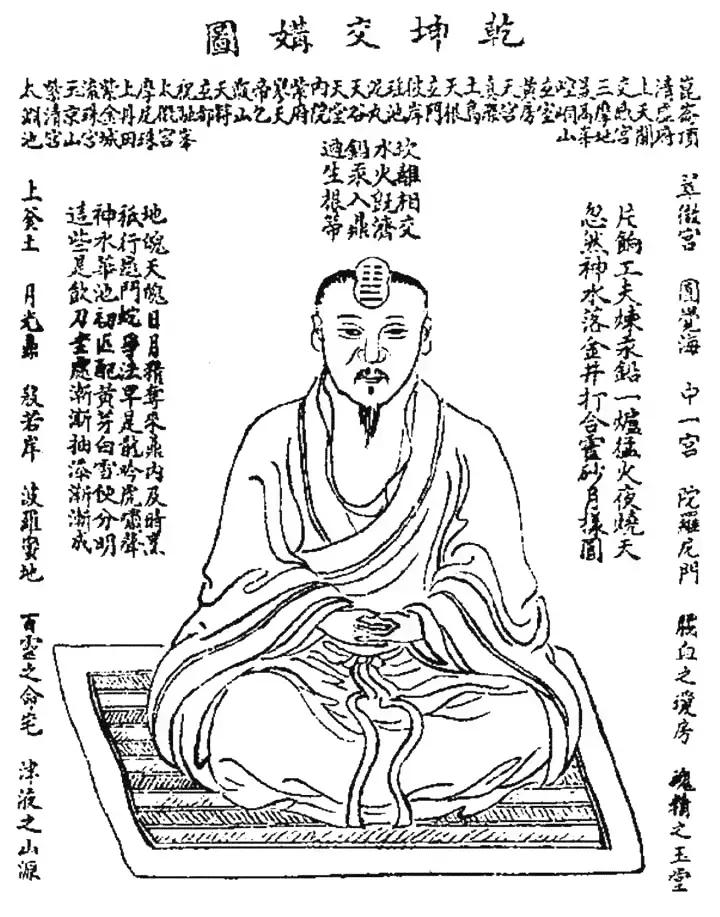 乾坤交媾圖
崑崙頂
清虛府
上天關
交感宮
三摩地
最高峯
崆峒山
玄室
黃房
天宮
真際
天根
玄門
彼岸
瑤池
泥丸
天谷
天堂
內院
紫府
帝乙
甑山
天符
玄都
祝融峯
太微宮
摩尼珠
上丹田
紫金城
流珠宮
玉京山
紫清宮
太淵池
翠微宮 圓覺海 中一宮 陀羅尼門 腦血之瓊房 魂精之玉堂
片餉工夫煉汞鉛一爐猛火夜燒天
忽然神水落金井打合靈砂月樣圓
坎離相交
水火既濟
鉛汞入鼎
適生根蒂
地魄天魂日月精奪來鼎內及時烹
祗行龜鬥蛇爭法早是龍吟虎嘯聲
神水華池初匹配黃芽白雪便分明
這些是飲刀圭處漸漸抽添漸漸成
上釜土 月光鼎 般若岸 波羅蜜地 百靈之命宅 津液之山源